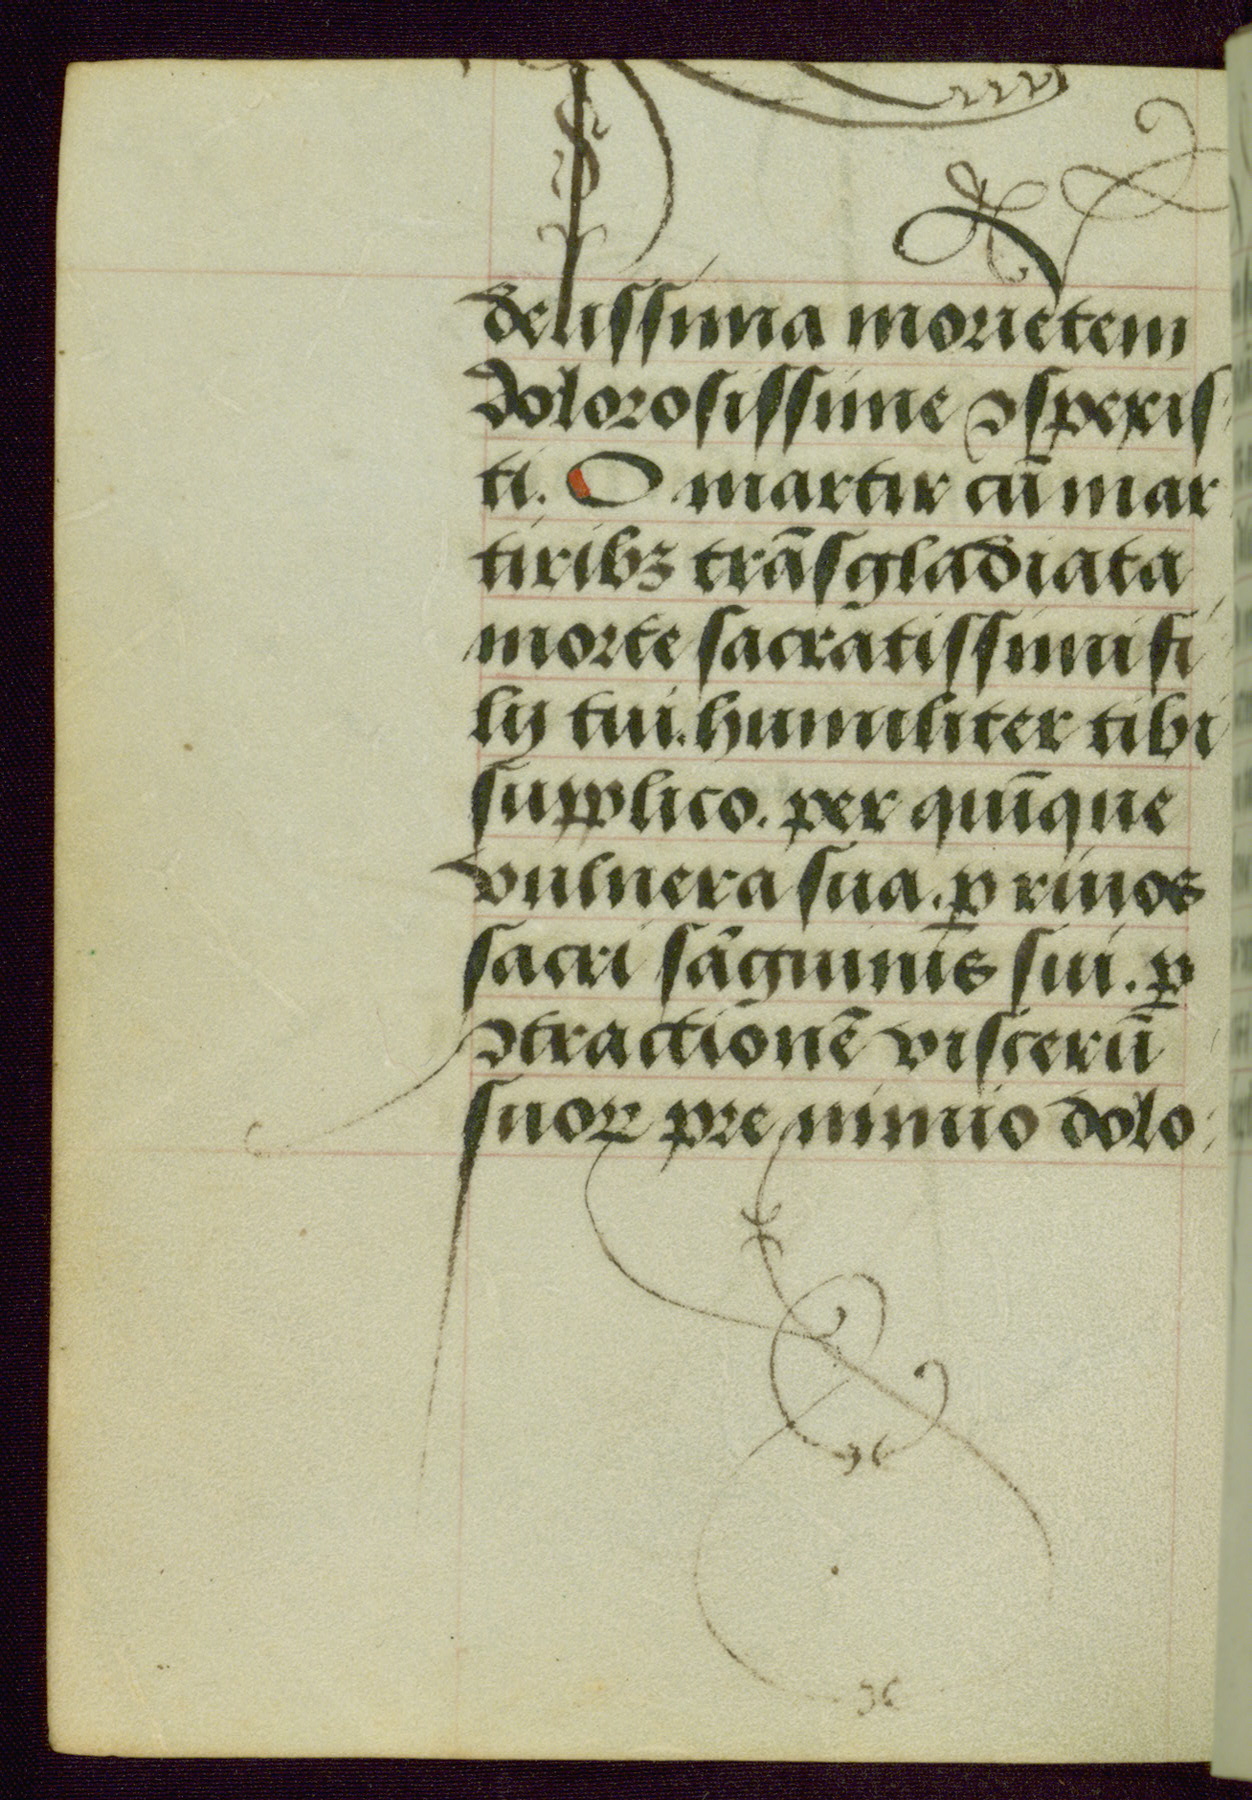 delissima morietem
dolorosissime ꝯspexis
ti. O martir cū mar
tiribꝫ trāsgladiata
morte sacratissimi fi
lij tui. humiliter tibi
supplico. per quīque
vulnera sua. ꝑ riuos
sacri sāguinis sui. ꝑ
ꝯtractionē viscerū
suoꝝ pre nimio dolo